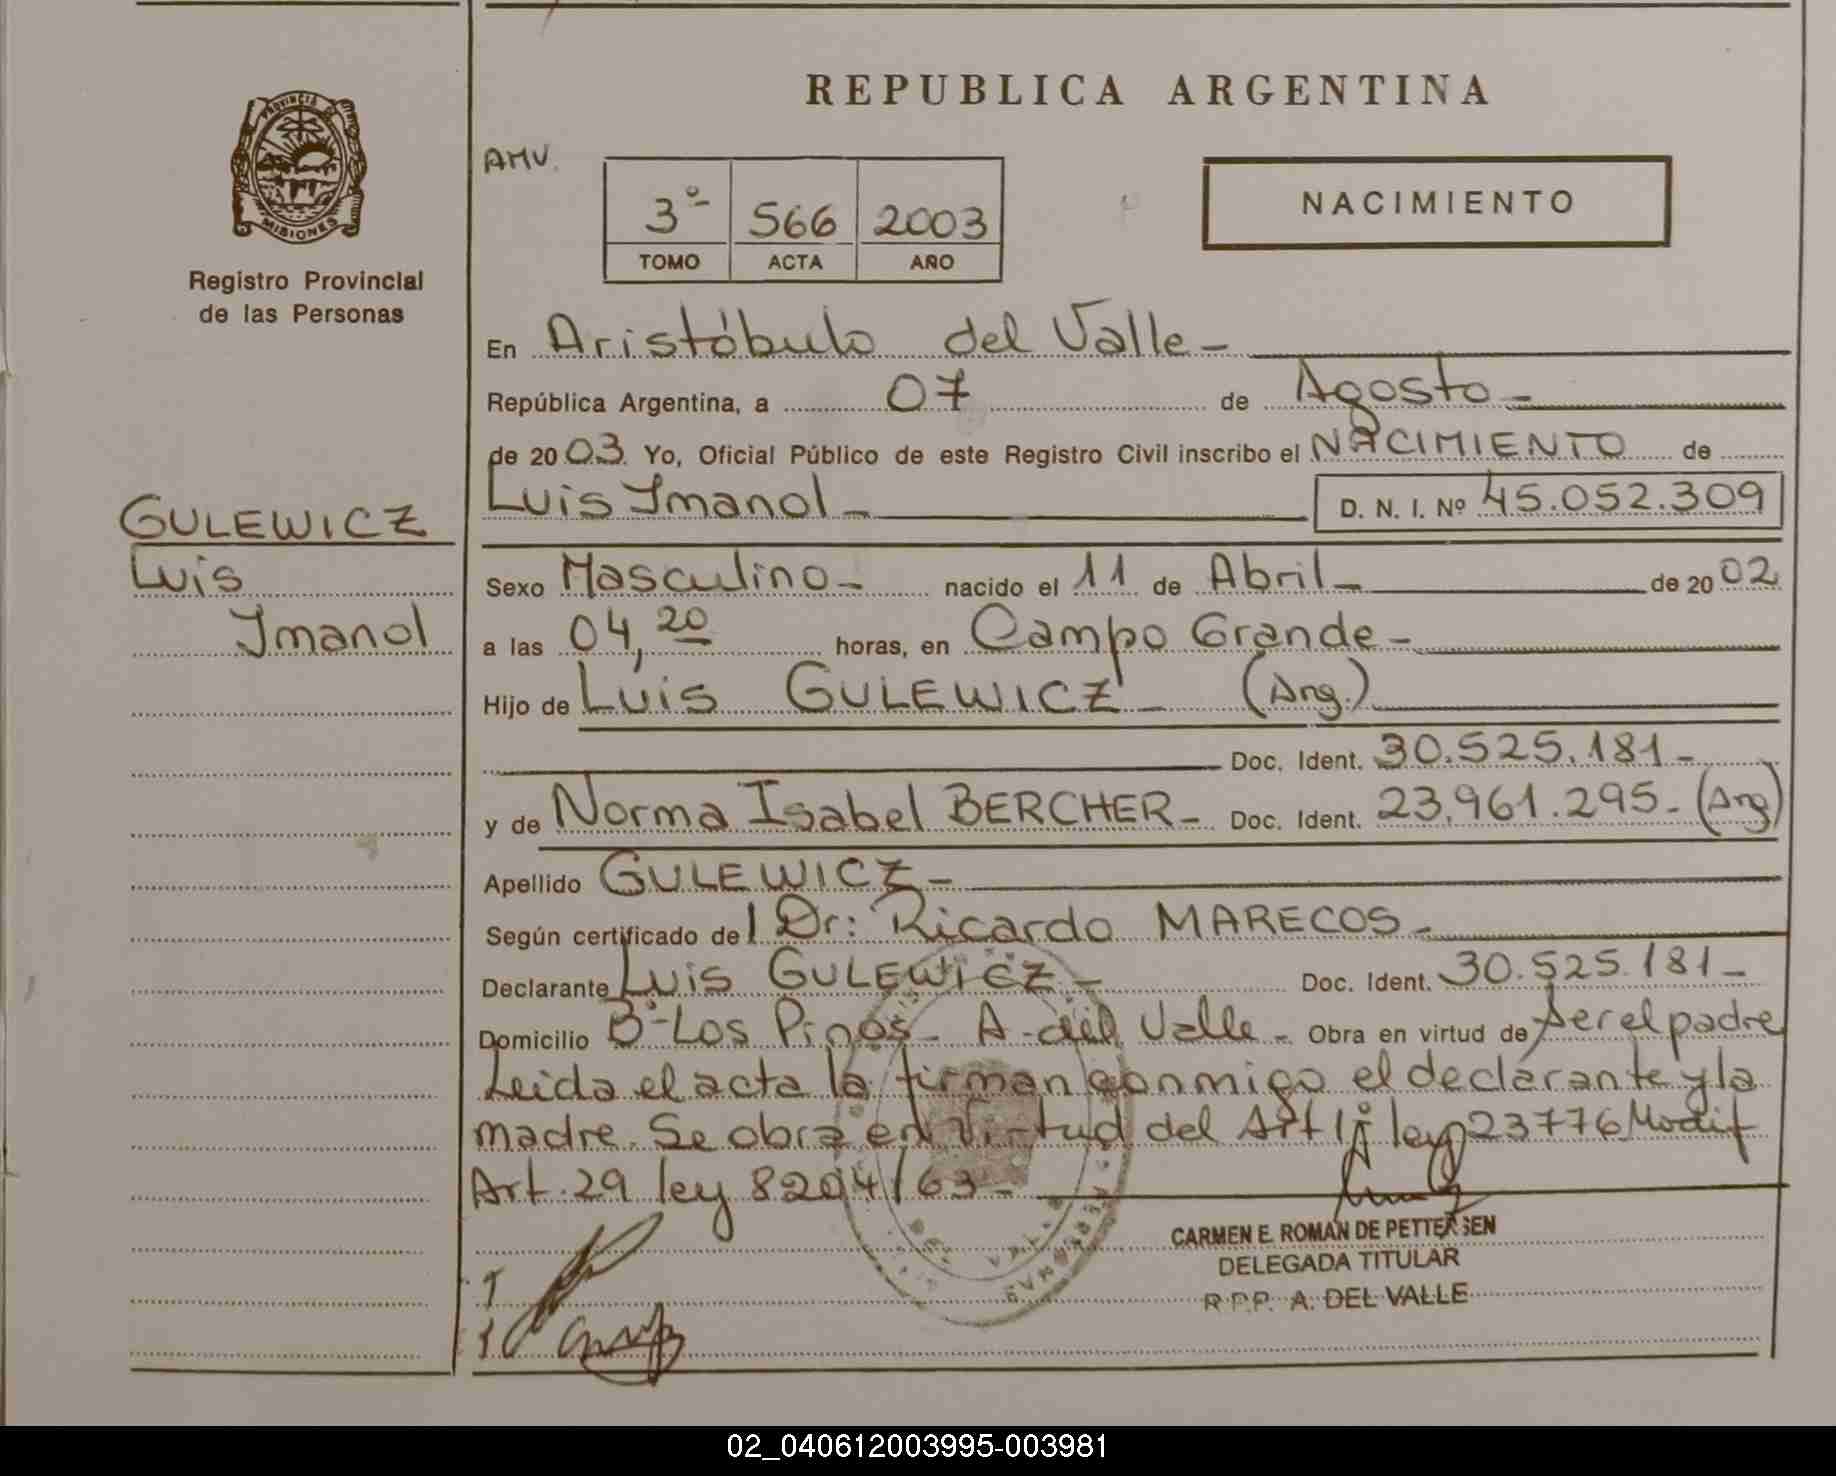 REPUBLICA ARGENTINA
PROVINCIA DE
MISIONES
Registro Provincial
de las Personas
AMV.
3º 566 2003
TOMO ACTA AÑO
NACIMIENTO
En Aristóbulo del Valle-
República Argentina, a 07 de Agosto-
de 2003. Yo, Oficial Público de este Registro Civil inscribo el NACIMIENTO de
Luis Imanol- D. N. I. Nº 45.052.309
GULEWICZ
Luis
Imanol
Sexo Masculino- nacido el 11 de Abril- de 2002
a las 04,20 horas, en Campo Grande-
Hijo de Luis GULEWICZ- (Arg.)
Doc. Ident. 30.525.181-
y de Norma Isabel BERCHER- Doc. Ident. 23.961.295- (Arg)
Apellido GULEWICZ-
Según certificado del Dr: Ricardo MARECOS-
Declarante Luis GULEWICZ- Doc. Ident. 30.525.181-
Domicilio Bº Los Pinos- A. del Valle- Obra en virtud de ser el padre
Leida el acta la firman conmigo el declarante y la
madre. Se obra en virtud del Art 1º ley 23776 Modif
Art. 29 ley 8204/63-
CARMEN E. ROMAN DE PETTERSEN
DELEGADA TITULAR
R.P.P. A. DEL VALLE
02_040612003995-003981